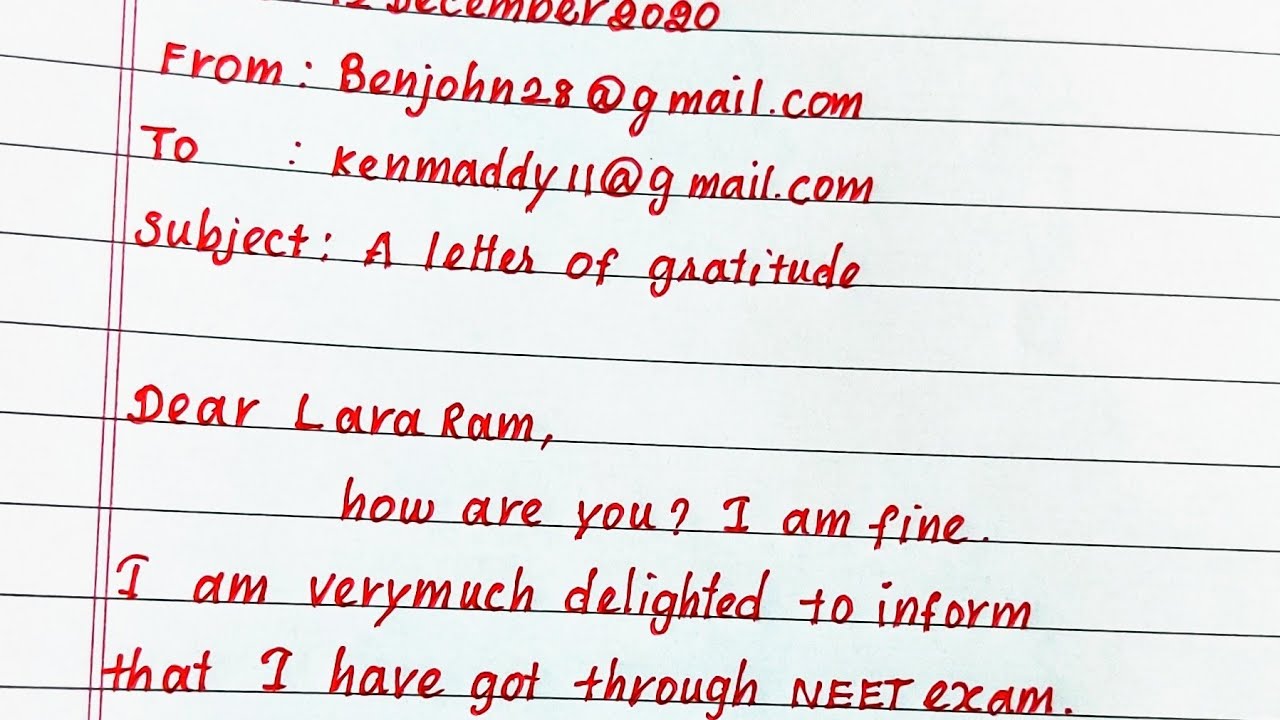 12 December 2020
From : Benjohn28@gmail.com
To : kenmaddy11@gmail.com
Subject : A letter of gratitude
Dear Lara Ram,
how are you? I am fine.
I am verymuch delighted to inform
that I have got through NEET exam.